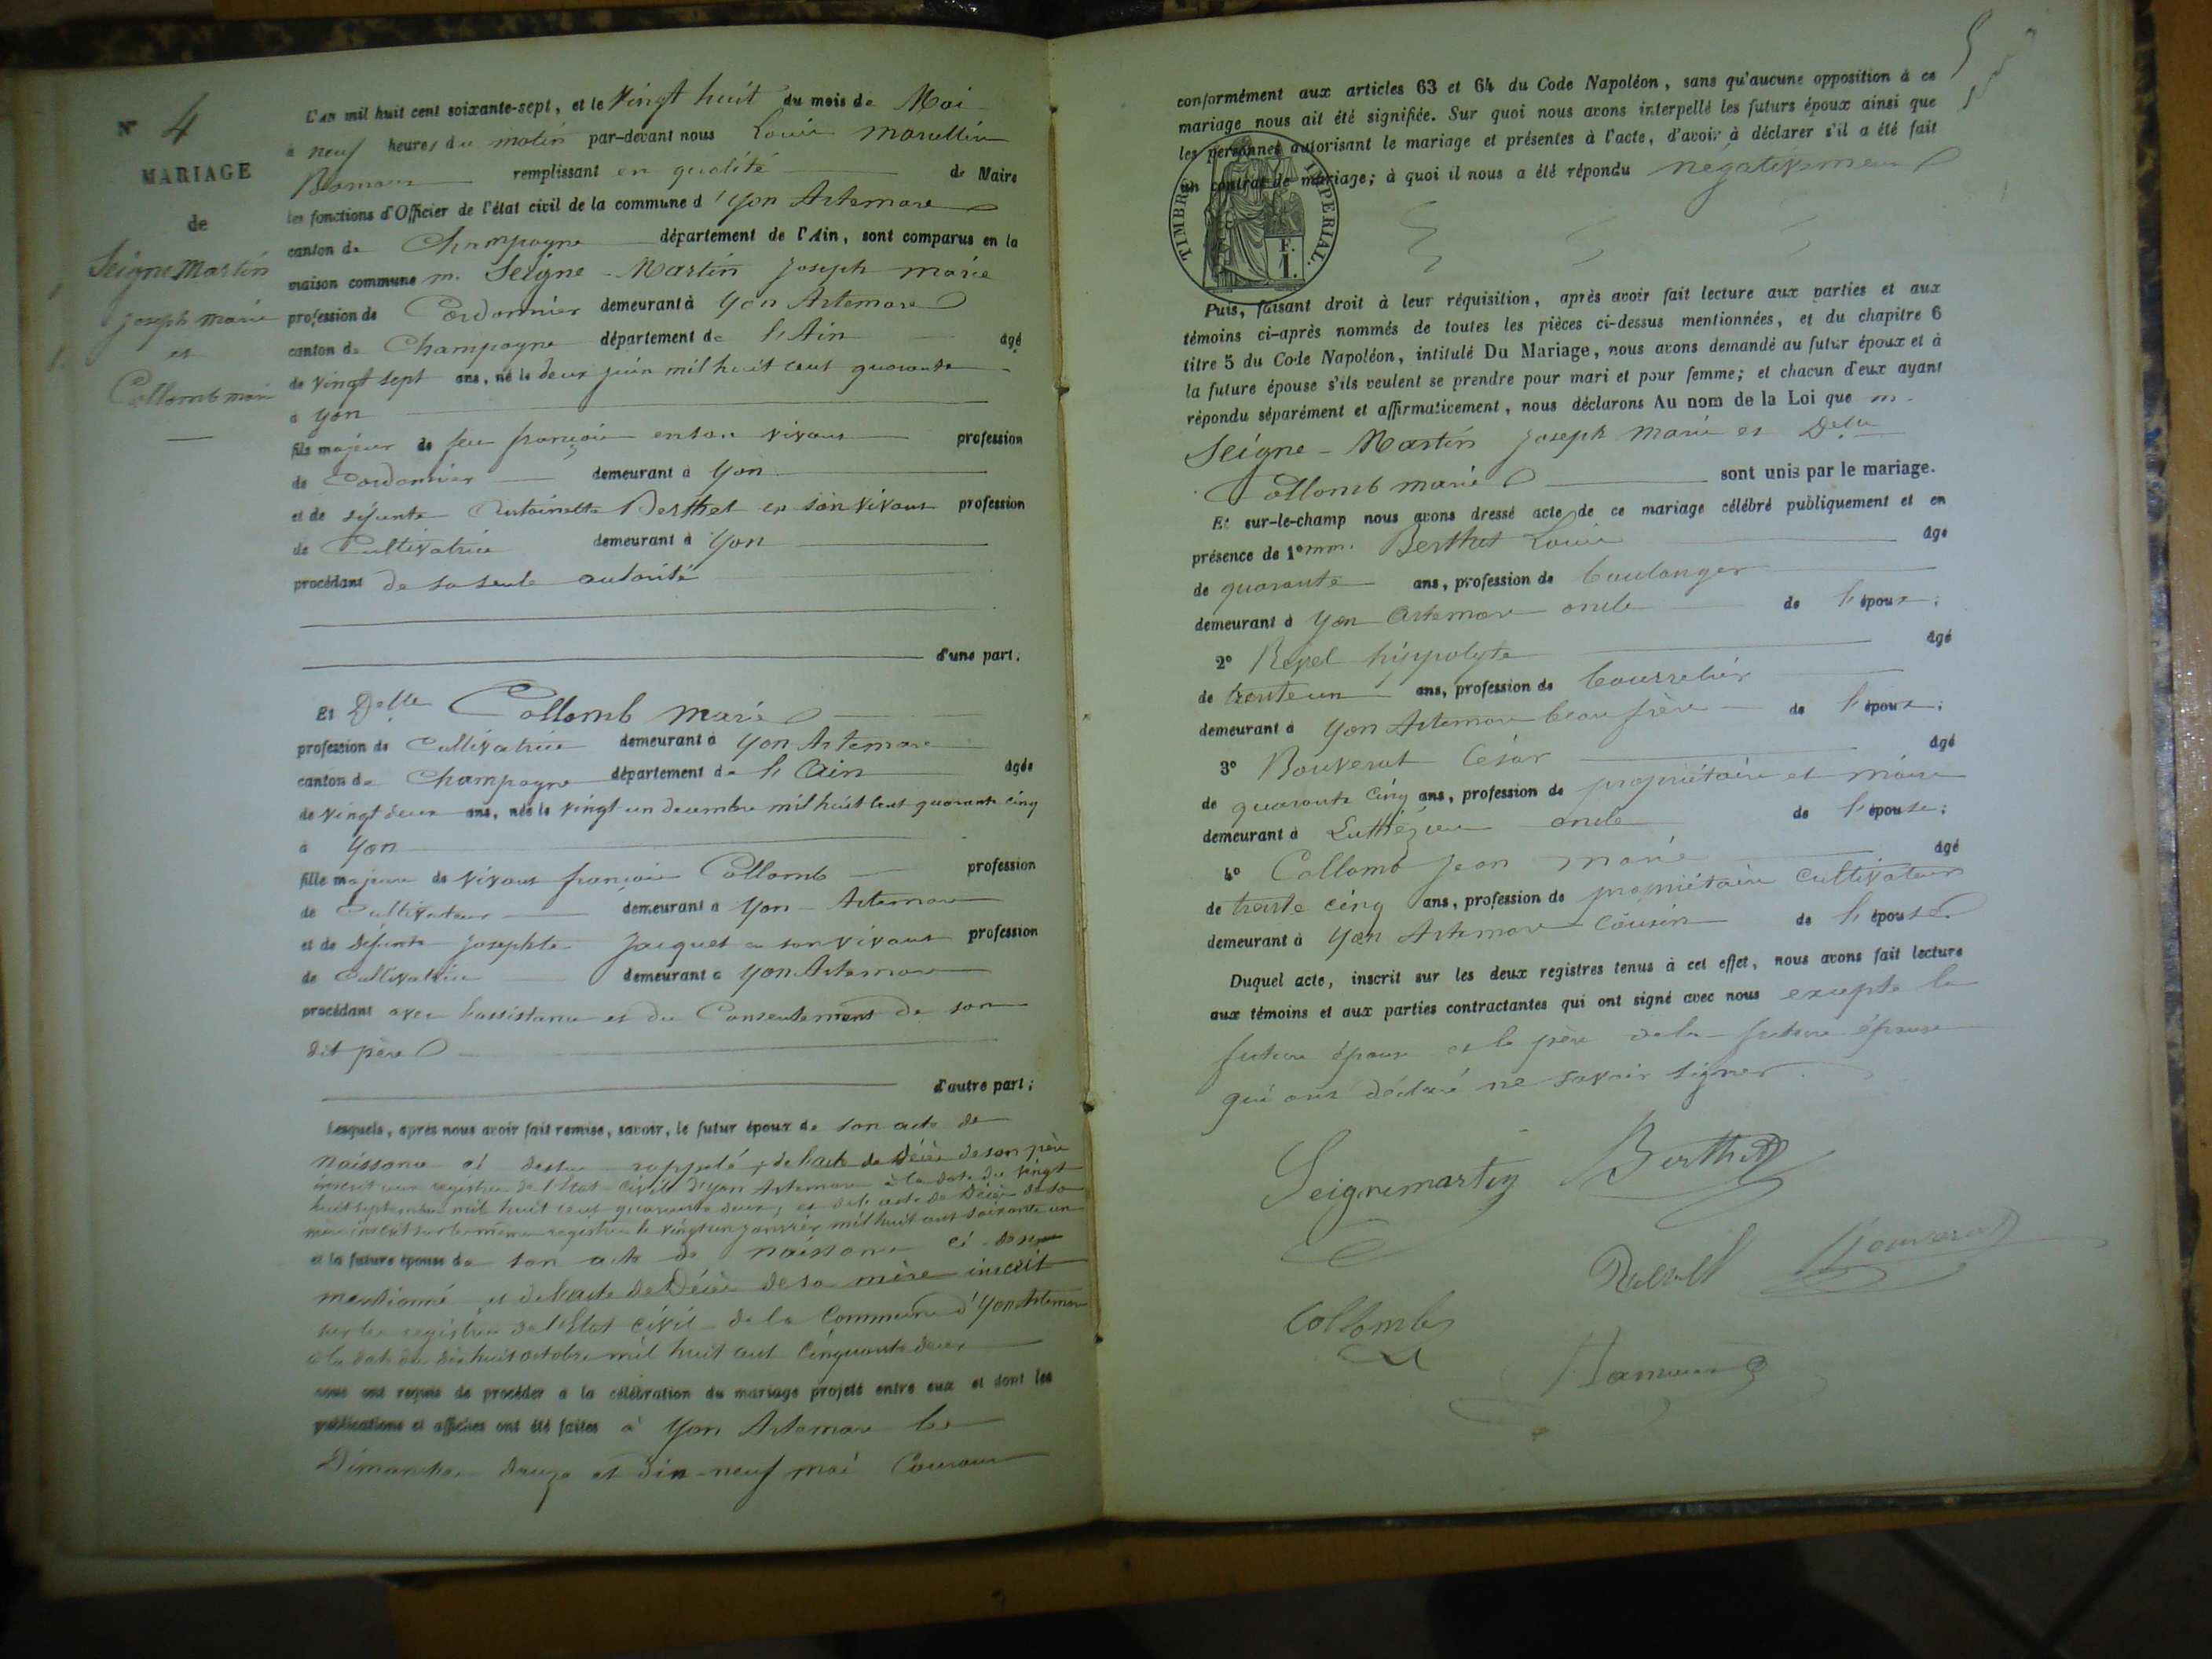 N° 4
MARIAGE
de
Seigne Martin
joseph marie
et
Collomb marie
L'an mil huit cent soixante-sept, et le Vingt huit du mois de Mai
à neuf heures du matin par-devant nous Louis Marcellin
remplissant en qualité de Maire
les fonctions d'Officier de l'état civil de la commune d'yon Artemare
canton de Champagne département de l'Ain, sont comparus en la
maison commune m. Seigne-Martin joseph marie
profession de Cordonnier demeurant à yon Artemare
canton de Champagne département de l'Ain âgé
de vingt sept ans, né le deux juin mil huit cent quarante
à yon
fils majeur de feu françois en son vivant profession
de Cordonnier demeurant à yon
et de défunte Antoinette Berthet en son vivant profession
de Cultivatrice demeurant à yon
procédant de sa seule autorité
d'une part;
Et Delle Collomb marie
profession de Cultivatrice demeurant à yon Artemare
canton de Champagne département de l'Ain âgée
de vingt deux ans, née le vingt un decembre mil huit cent quarante cinq
à yon
fille majeure de vivant françois Collomb profession
de Cultivateur demeurant à yon-Artemare
et de défunte josephte jacquet en son vivant profession
de Cultivatrice demeurant à yon Artemare
procédant avec l'assistance et du Consentement de son
dit père
d'autre part;
Lesquels, après nous avoir fait remise, savoir, le futur époux de son acte de
naissance ci dessus rappelé, de l'acte de décès de son père
inscrit aux registres de l'Etat civil d'yon Artemare à la date du vingt
huit septembre mil huit cent quarante deux, et de l'acte de décès de sa
mère inscrit sur le même registre le vingt un janvier mil huit cent soixante un
et la future épouse de son acte de naissance ci-dessus
mentionné et de l'acte de Décès de sa mère inscrit
sur les registres de l'Etat civil de la Commune d'yon Artemare
à la date du dix huit octobre mil huit cent cinquante deux
nous ont requis de procéder à la célébration du mariage projeté entre eux et dont les
publications et affiches ont été faites à yon Artemare les
Dimanches douze et dix-neuf mai Courant
5
conformément aux articles 63 et 64 du Code Napoléon, sans qu'aucune opposition à ce
mariage nous ait été signifiée. Sur quoi nous avons interpellé les futurs époux ainsi que
les personnes autorisant le mariage et présentes à l'acte, d'avoir à déclarer s'il a été fait
un contrat de mariage; à quoi il nous a été répondu négativement
TIMBRE IMPERIAL.
F.
1.
Puis, faisant droit à leur réquisition, après avoir fait lecture aux parties et aux
témoins ci-après nommés de toutes les pièces ci-dessus mentionnées, et du chapitre 6
titre 5 du Code Napoléon, intitulé Du Mariage, nous avons demandé au futur époux et à
la future épouse s'ils veulent se prendre pour mari et pour femme; et chacun d'eux ayant
répondu séparément et affirmativement, nous déclarons Au nom de la Loi que m.
Seigne-Martin joseph Marie et Delle
Collomb marie sont unis par le mariage.
Et sur-le-champ nous avons dressé acte de ce mariage célébré publiquement et en
présence de 1° mm. Berthet Louis âgé
de quarante ans, profession de boulanger
demeurant à yon Artemare oncle de l'époux;
2° Revel hippolyte âgé
de trente un ans, profession de bourrelier
demeurant à yon Artemare beau frère de l'époux;
3° Bouverat César âgé
de quarante cinq ans, profession de propriétaire et maire
demeurant à Luthézieu oncle de l'épouse;
4° Collomb jean marie âgé
de trente cinq ans, profession de propriétaire cultivateur
demeurant à yon Artemare Cousin de l'épouse
Duquel acte, inscrit sur les deux registres tenus à cet effet, nous avons fait lecture
aux témoins et aux parties contractantes qui ont signé avec nous excepté la
future épouse et le père de la future épouse
qui ont déclaré ne savoir signer.
Seignemartin Berthet
Revel Bouverat
Collomb